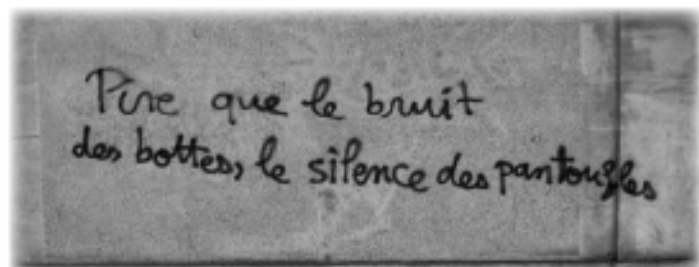 Pire que le bruit
des bottes, le silence des pantoufles